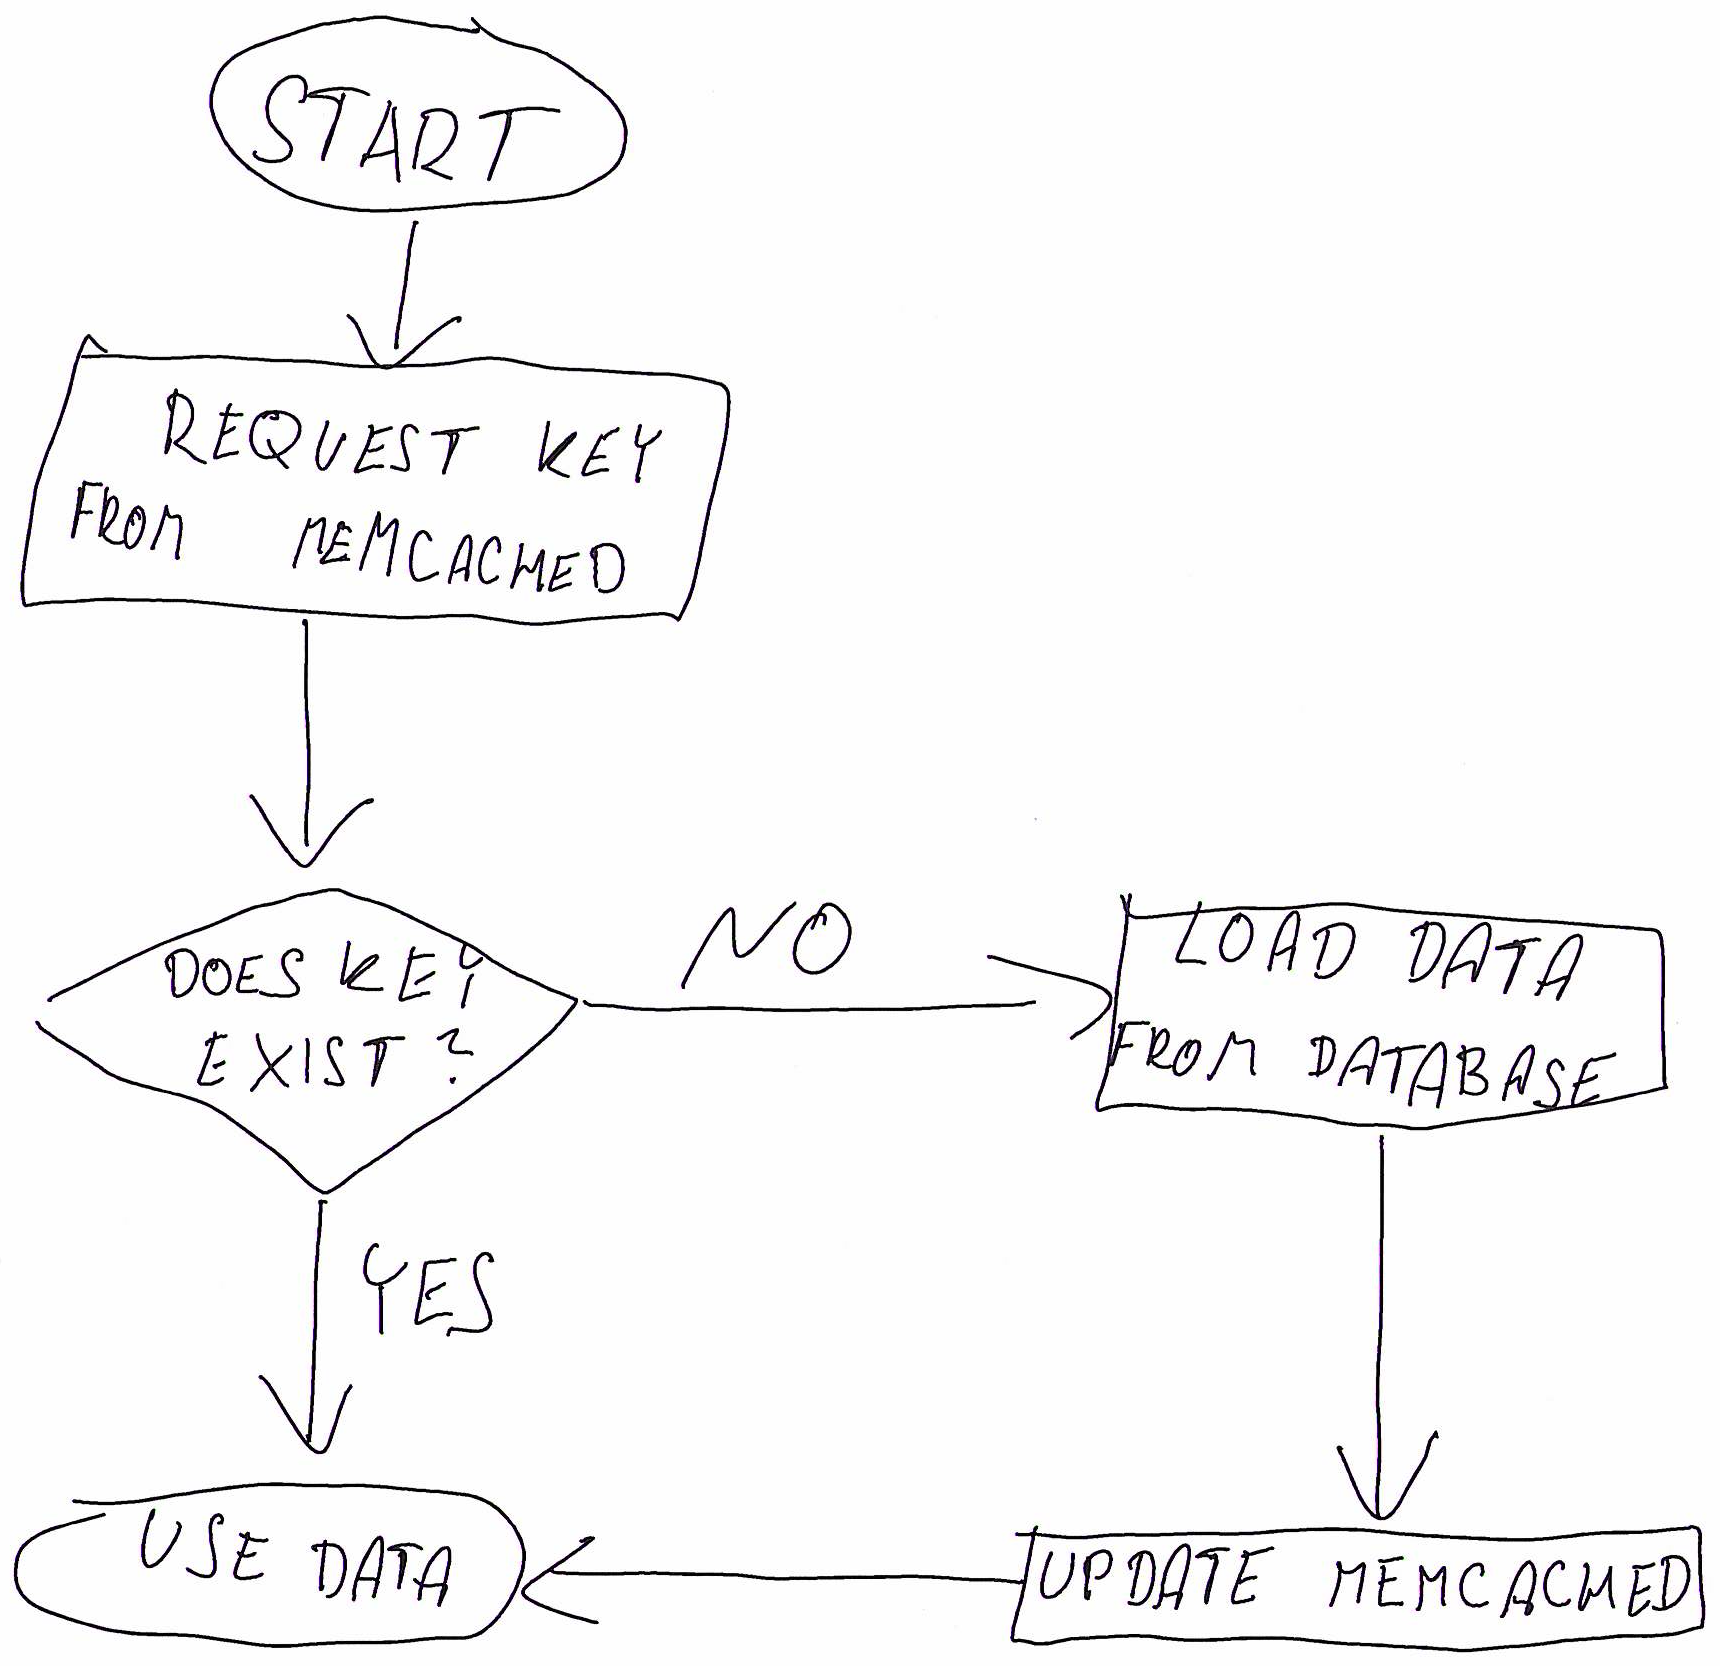 START
REQUEST KEY
FROM MEMCACHED
DOES KEY
EXIST?
NO
LOAD DATA
FROM DATABASE
YES
USE DATA
UPDATE MEMCACHED